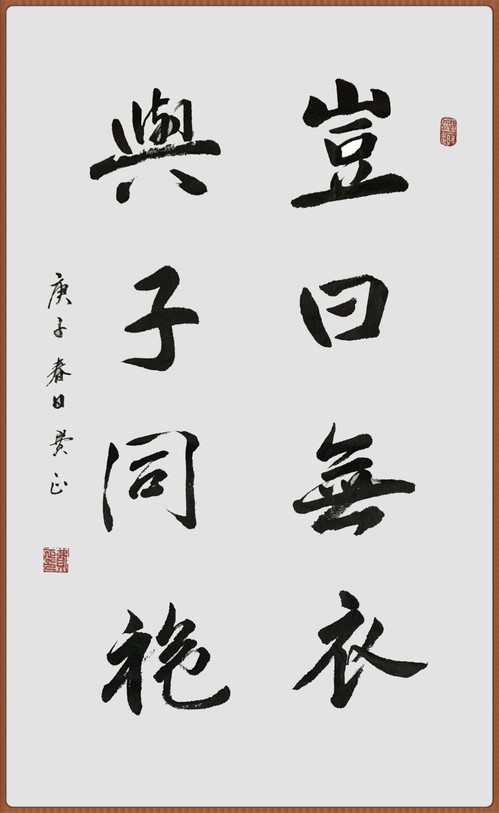 豈曰無衣
與子同袍
庚子春日费正